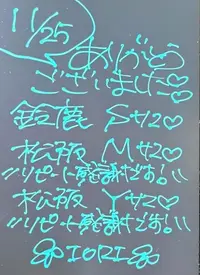 11/25
ありがとう
ございました♡
鈴鹿 Sサン♡
松阪 Mサン♡
!!リピート感謝です!!
松阪 Yサン♡
!!リピート感謝です!!
IORI